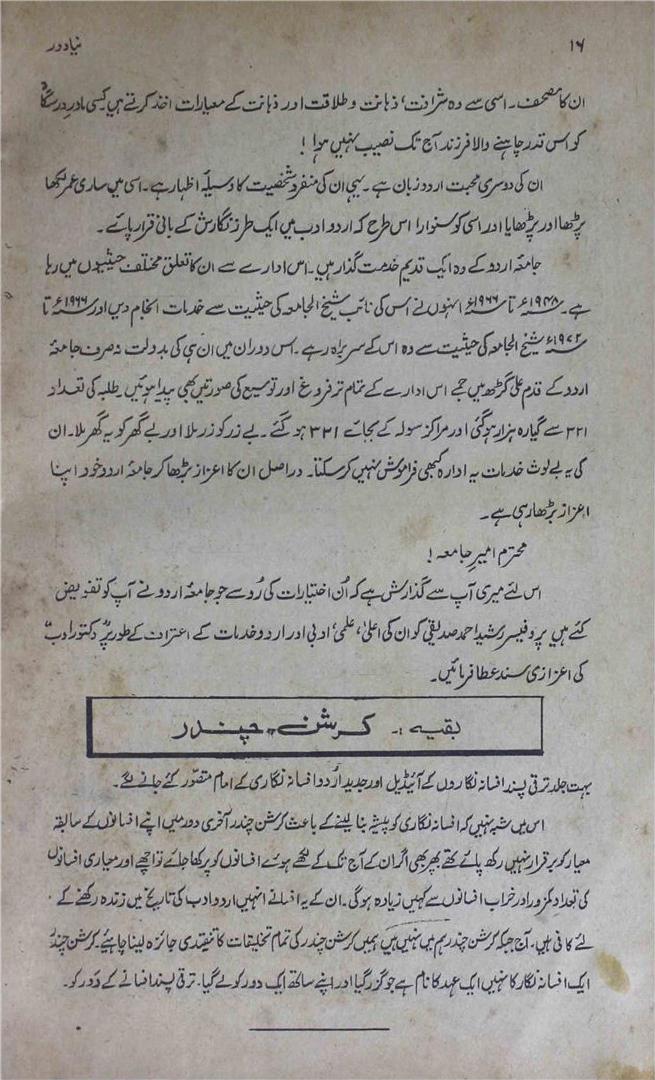 ۱۶
نیا دور
ان کا مصحف۔ اسی سے وہ شرافت، ذہانت و طلاقت اور ذہانت کے معیارات اخذ کرتے ہیں۔ کسی مادرِ درسگاہ
کو اس قدر چاہنے والا فرزند آج تک نصیب نہیں ہوا!
ان کی دوسری محبت اردو زبان ہے۔ یہی ان کی منفرد شخصیت کا وسیلۂ اظہار ہے۔ اسی میں ساری عمر لکھا
پڑھا اور پڑھایا اور اسی کو سنوارا اس طرح کہ اردو ادب میں ایک طرز نگارش کے بانی قرار پائے۔
جامعہ اردو کے وہ ایک قدیم خدمت گذار ہیں۔ اس ادارے سے ان کا تعلق مختلف حیثیتوں میں رہا
ہے۔ ۱۹۴۸ء تا ۱۹۶۶ء انہوں نے اس کی نائب شیخ الجامعہ کی حیثیت سے خدمات انجام دیں اور ۱۹۶۶ء تا
۱۹۷۲ء شیخ الجامعہ کی حیثیت سے وہ اس کے سربراہ رہے۔ اس دوران میں ان ہی کی بدولت نہ صرف جامعہ
اردو کے قدم علی گڑھ میں جمے اس ادارے کے تمام تر فروغ اور توسیع کی صورتیں بھی پیدا ہوئیں۔ طلبہ کی تعداد
۳۲۱ سے گیارہ ہزار ہو گئی اور مراکز سولہ کے بجائے ۳۲۱ ہو گئے۔ بے زر کو زر ملا اور بے گھر کو یہ گھر ملا۔ ان
کی یہ بے لوث خدمات یہ ادارہ کبھی فراموش نہیں کر سکتا۔ دراصل ان کا اعزاز بڑھا کر جامعہ اردو خود اپنا
اعزاز بڑھا رہی ہے۔
محترم امیر جامعہ!
اس لئے میری آپ سے گذارش ہے کہ اُن اختیارات کی رُو سے جو جامعہ اردو نے آپ کو تفویض
کئے ہیں پروفیسر رشید احمد صدیقی کو ان کی اعلیٰ، علمی، ادبی اور اردو خدمات کے اعتراف کے طور پر "دکتور ادب"
کی اعزازی سند عطا فرمائیں۔
بقیہ :۔ کرشن چندر
بہت جلد ترقی پسند افسانہ نگاروں کے آئیڈیل اور جدید اُردو افسانہ نگاری کے امام متصور کئے جانے لگے۔
اس میں شبہ نہیں کہ افسانہ نگاری کو پیشہ بنا لینے کے باعث کرشن چندر آخری دور میں اپنے افسانوں کے سابقہ
معیار کو برقرار نہیں رکھ پائے تھے پھر بھی اگر ان کے آج تک کے لکھے ہوئے افسانوں کو پرکھا جائے تو اچھے اور معیاری افسانوں
کی تعداد کمزور اور خراب افسانوں سے کہیں زیادہ ہوگی۔ ان کے یہ افسانے انہیں اردو ادب کی تاریخ میں زندہ رکھنے کے
لئے کافی ہیں۔ آج جبکہ کرشن چندر ہم میں نہیں ہیں ہمیں کرشن چندر کی تمام تخلیقات کا تنقیدی جائزہ لینا چاہئے۔ کرشن چندر
ایک افسانہ نگار کا نہیں ایک عہد کا نام ہے جو گزر گیا اور اپنے ساتھ ایک دور کو لے گیا۔ ترقی پسند افسانے کے دَور کو۔